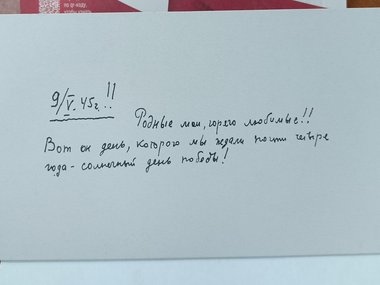 по qr-коду,
чтобы узнать
9/V.45г.!!
Родные мои, горячо любимые!!
Вот он день, которого мы ждали почти четыре
года - солнечный день победы!